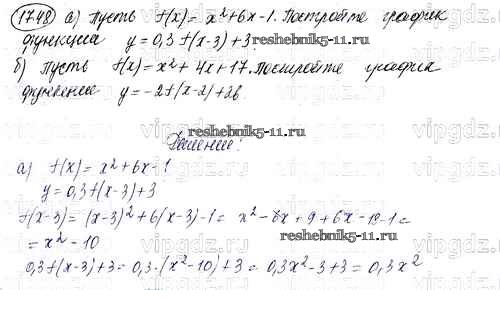 1748 а) Пусть f(x) = x²+6x-1. Постройте график
функции y=0,3 f(x-3)+3
reshebnik5-11.ru
б) Пусть f(x)=x²+4x+17. Постройте график
функции y=-2f(x-2)+26
reshebnik5-11.ru
Решение:
а) f(x)=x²+6x-1
y=0,3f(x-3)+3
f(x-3)=(x-3)²+6(x-3)-1= x²-6x+9+6x-18-1=
reshebnik5-11.ru
=x²-10
0,3f(x-3)+3=0,3·(x²-10)+3=0,3x²-3+3=0,3x²